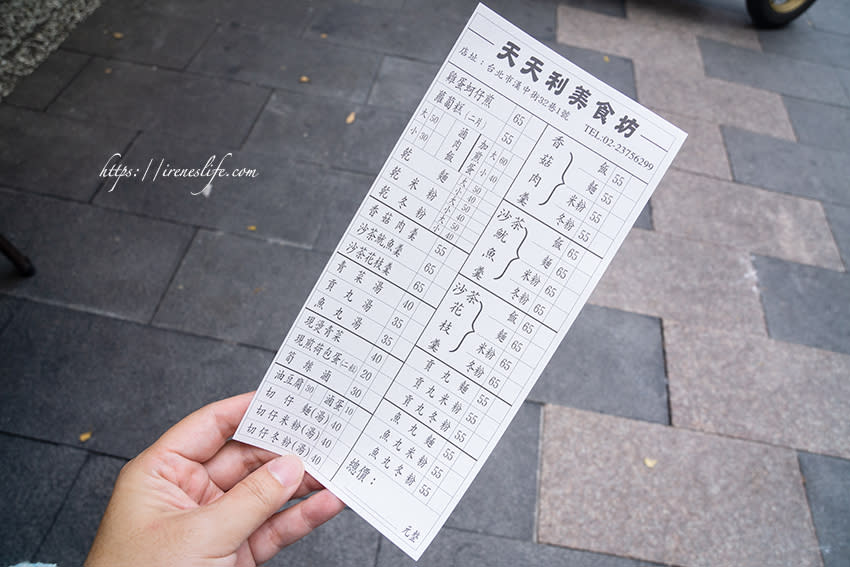 天天利美食坊
店址：台北市漢中街32巷1號
TEL:02-23756299
雞蛋蚵仔煎 65
蘿蔔糕(二片) 55
滷肉飯 大50 小30
加煎蛋 大60 小40
乾麵 大50 小40
乾米粉 大50 小40
乾冬粉 大50 小40
香菇肉羹 55
沙茶魷魚羹 65
沙茶花枝羹 65
青菜湯 40
貢丸湯 35
魚丸湯 35
現燙青菜 40
現煎荷包蛋(二粒) 20
筍絲滷 30
油豆腐 30 滷蛋 10
切仔麵(湯) 40
切仔米粉(湯) 40
切仔冬粉(湯) 40
香菇肉羹
飯 55
麵 55
米粉 55
冬粉 55
沙茶魷魚羹
飯 65
麵 65
米粉 65
冬粉 65
沙茶花枝羹
飯 65
麵 65
米粉 65
冬粉 65
貢丸麵 55
貢丸米粉 55
貢丸冬粉 55
魚丸麵 55
魚丸米粉 55
魚丸冬粉 55
總價：
元整
https://ireneslife.com